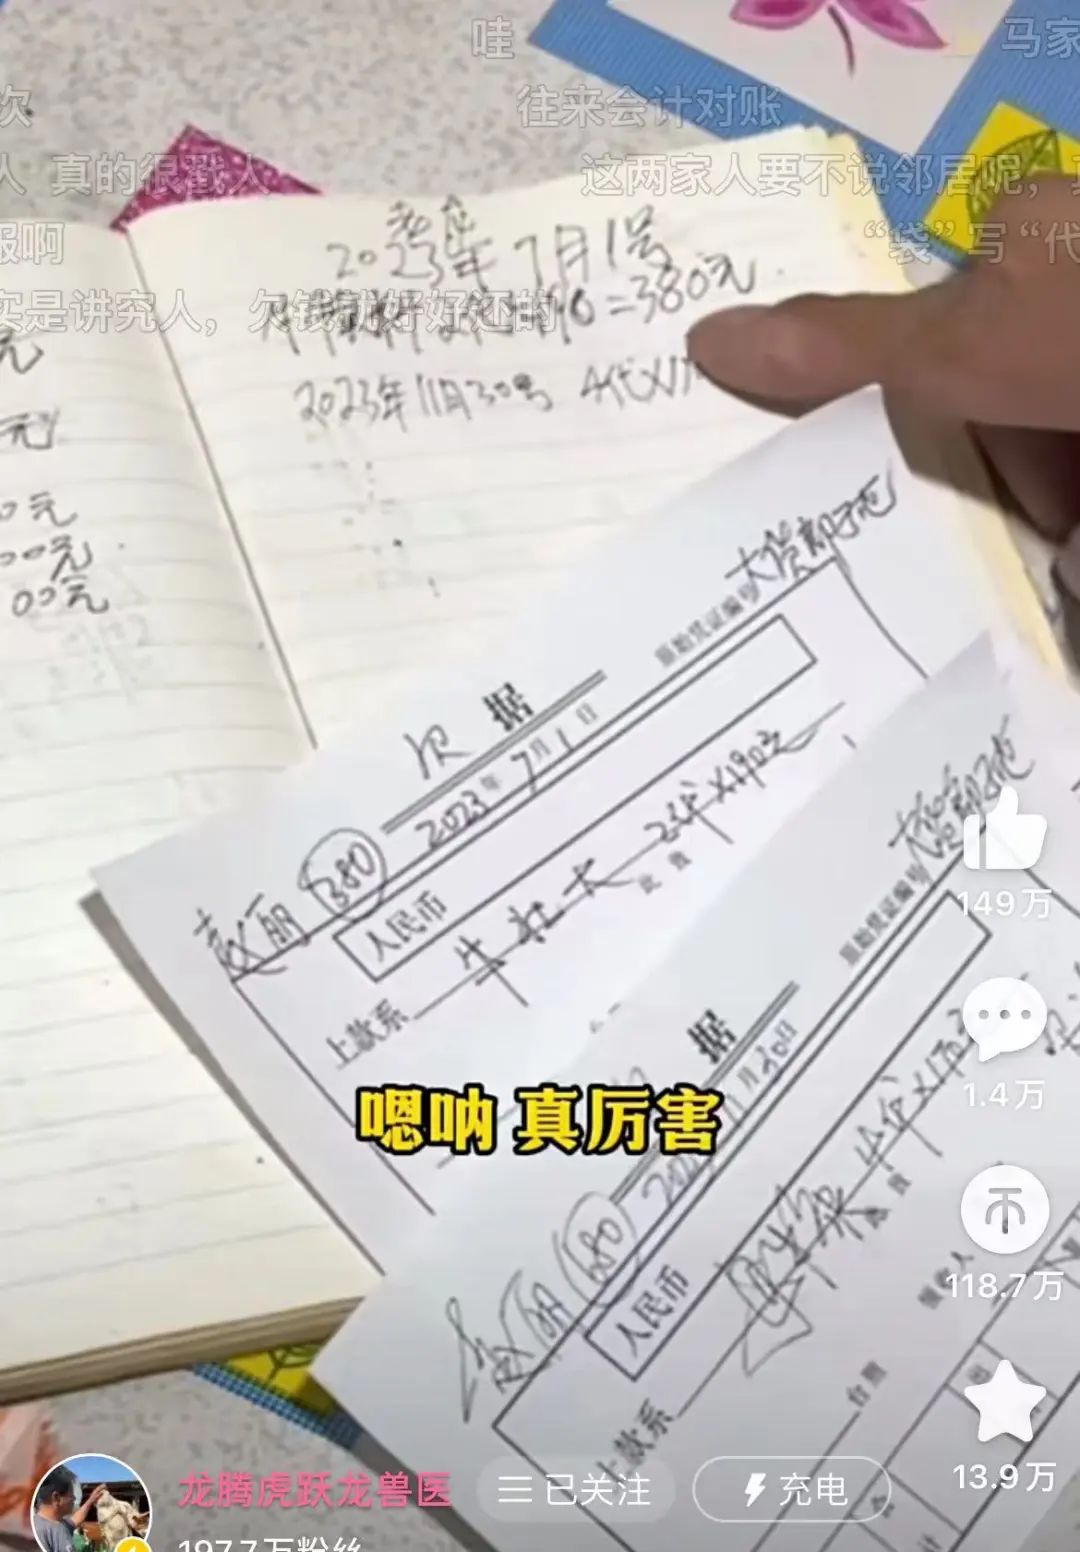 哇
马家
次
往来会计对账
人 真的很戳人
这两家人要不说邻居呢，真
服啊
“袋”写“代
实是讲究人，欠钱就好好还的
2023年7月1号
2代×190=380元
2023年11月30号 4代×17
元
元
0元
00元
00元
大贷部子屯
原始凭证编号
欠 据
2023年7月1日
赵丽 380
人民币
上款系 牛 2代×190元
此致
原始凭证编号
据
月30日
赵丽 680
人民币
4代×170元
此致
上款系
领收人
台照
嗯呐 真厉害
149万
1.4万
118.7万
13.9万
龙腾虎跃龙兽医
已关注
充电
197.7万粉丝